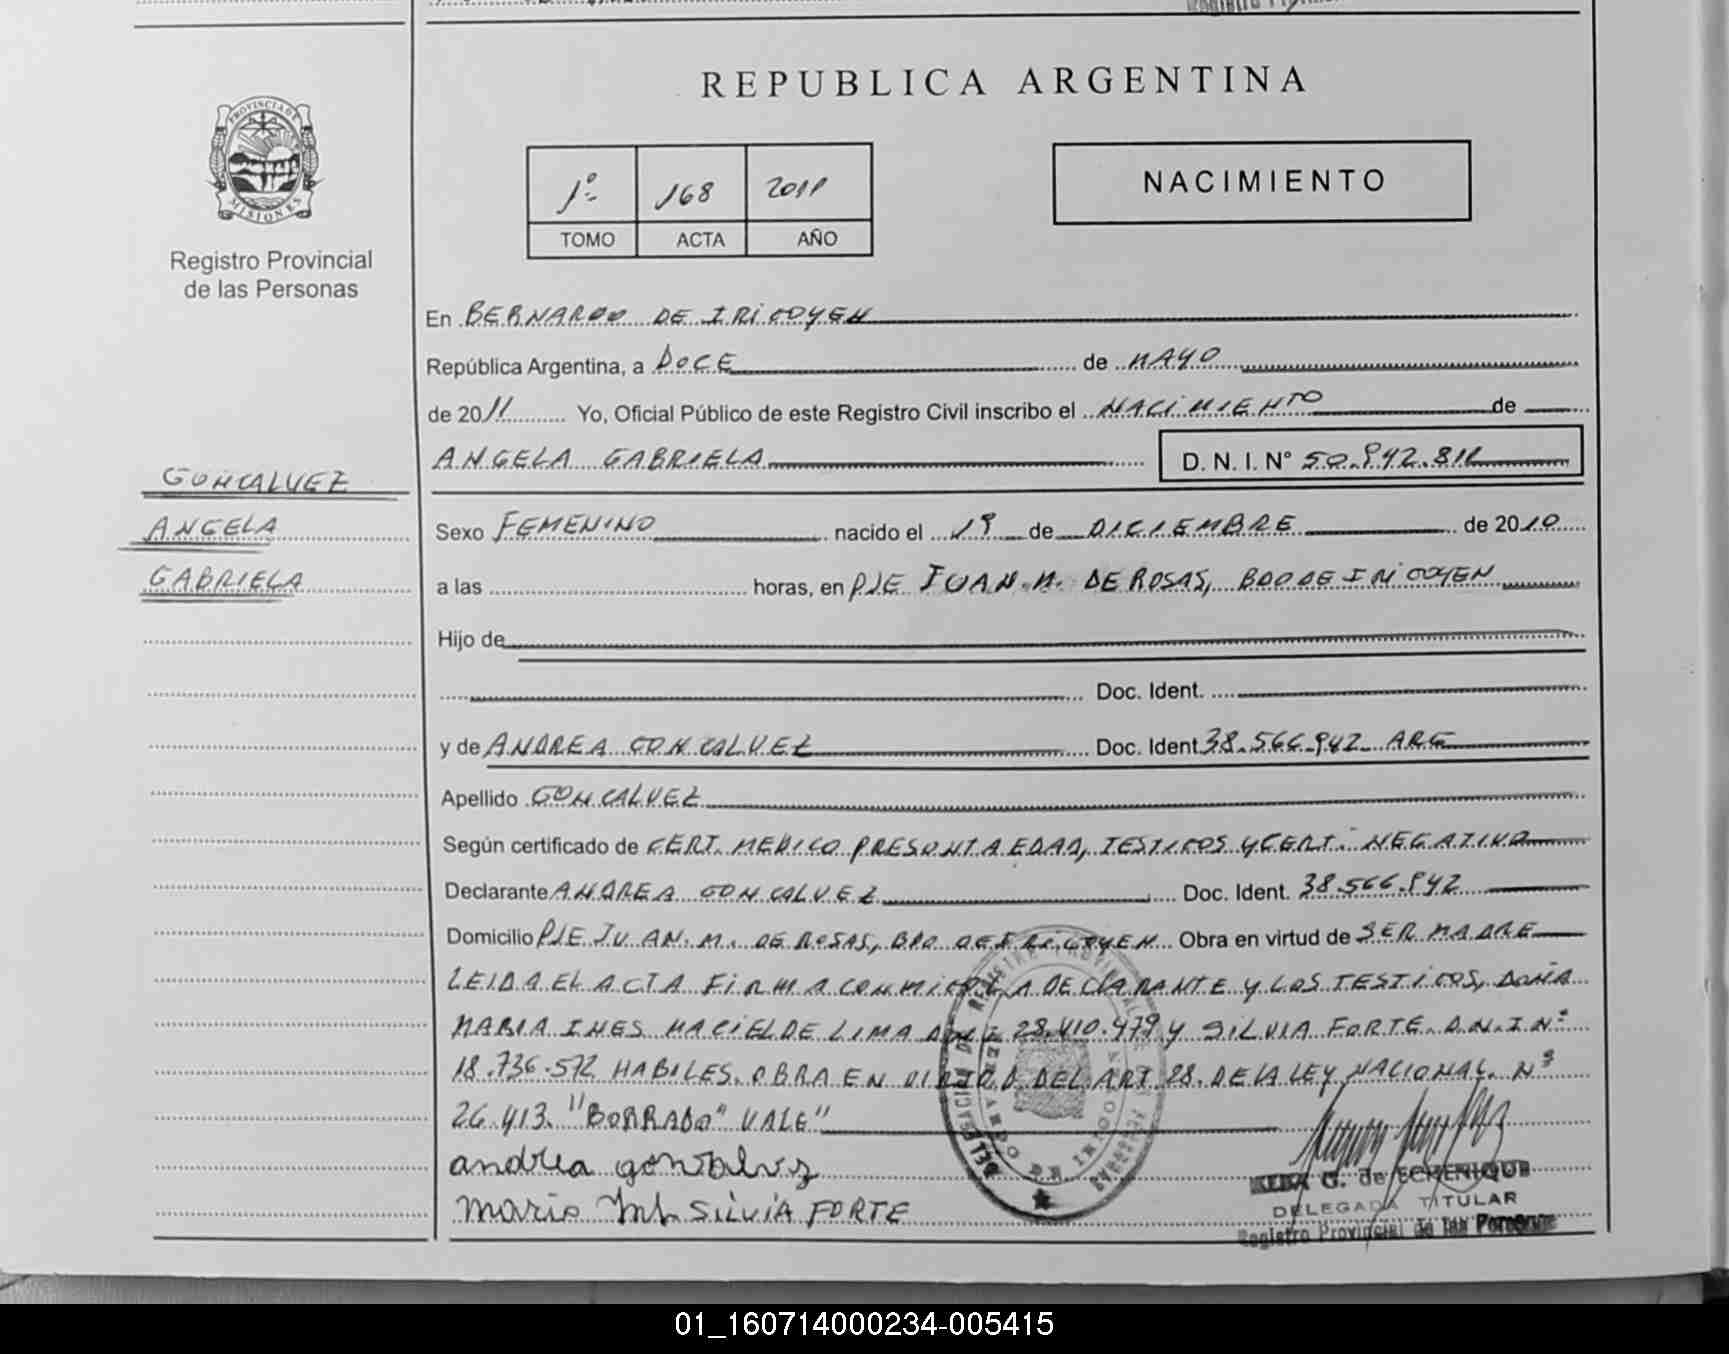 REPUBLICA ARGENTINA
PROVINCIA DE
MISIONES
Registro Provincial
de las Personas
1º 168 2011
TOMO ACTA AÑO
NACIMIENTO
En BERNARDO DE IRIGOYEN
República Argentina, a DOCE de MAYO
de 2011 Yo, Oficial Público de este Registro Civil inscribo el NACIMIENTO de
ANGELA GABRIELA D. N. I. N°
GONCALVEZ
ANGELA
GABRIELA
Sexo FEMENINO nacido el de DICIEMBRE de 2010
a las horas, en PJE JUAN. M. DE ROSAS, BDO DE IRIGOYEN
Hijo de
Doc. Ident.
y de ANDREA GONCALVEZ Doc. Ident 38.566.942 ARG
Apellido GONCALVEZ
Según certificado de CERT. MEDICO PRESUNTA EDAD, TESTIGOS Y CERT. NEGATIVO
Declarante ANDREA GONCALVEZ Doc. Ident. 38.566.942
Domicilio PJE JUAN. M. DE ROSAS, BDO DE IRIGOYEN Obra en virtud de SER MADRE
LEIDA EL ACTA FIRMA CONMIGO LA DECLARANTE Y LOS TESTIGOS, DOÑA
MARIA INES MACIEL DE LIMA D.N.I 28.410.479 Y SILVIA FORTE D.N.I Nº
18.736.572 HABILES. OBRA EN DEL ART. 28. DE LA LEY NACIONAL. Nº
26.413. "BORRADO" VALE"
andrea gonzalvez
Maria SILVIA FORTE
G. de ECHENIQUE
DELEGADA TITULAR
Registro Provincial de las Personas
01_160714000234-005415